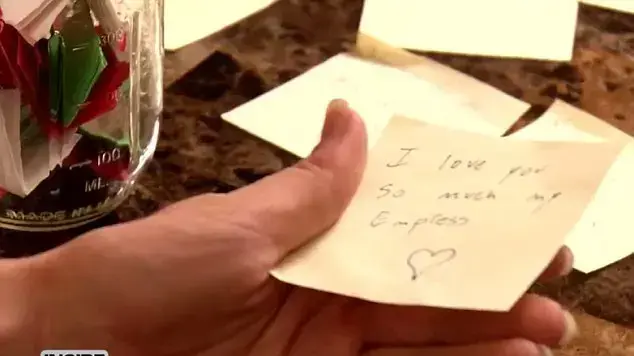 100
100
ML
MADE IN
I love you
So much my
Empress
INSIDE